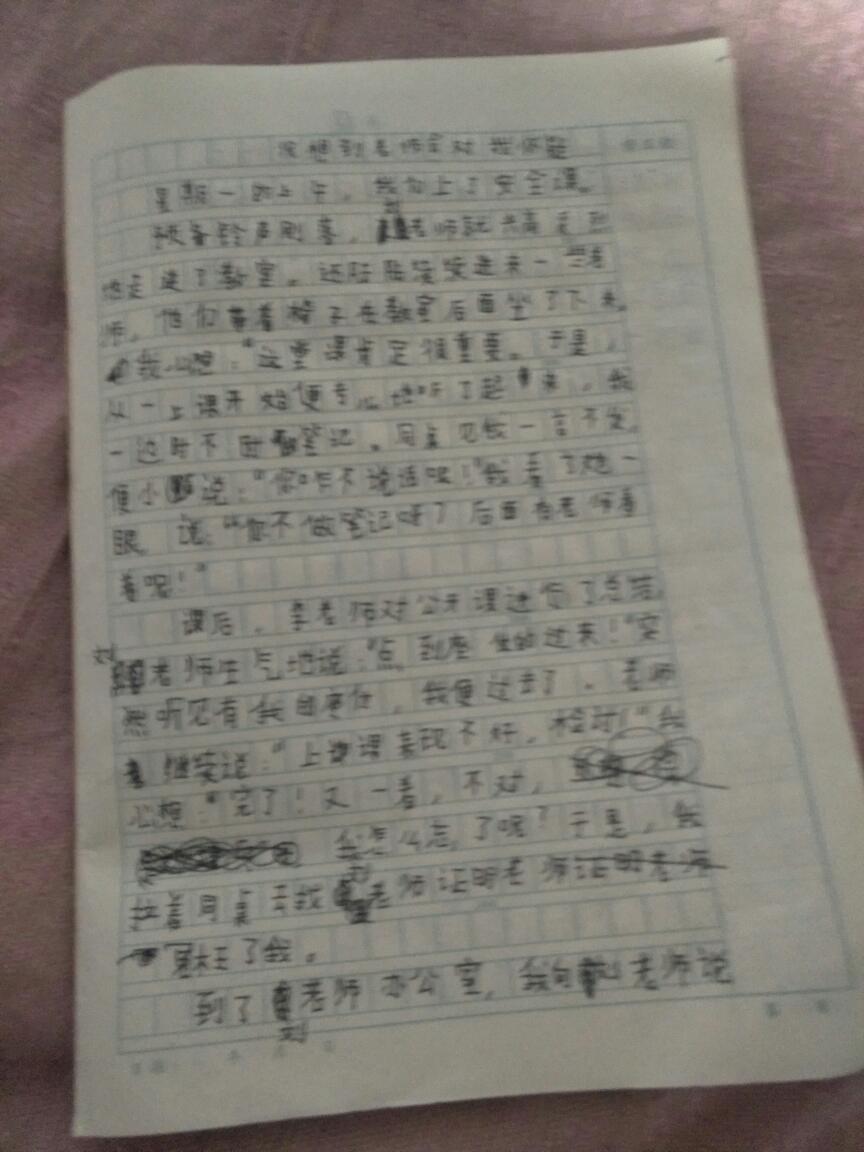 没想到老师会对我怀疑
星期一的上午，我们上了安全课。
预备铃声刚落，刘老师就兴高采烈
地走进了教室。还陆陆续续进来一些老
师，他们拿着椅子在教室后面坐了下来。
我心想：“这堂课肯定很重要。于是，
从一上课开始便专心地听了起来，我
一边时不时做笔记。同桌见我一言不发，
便小声说：“你咋不说话呢！”我看了她一
眼，说：“你不做笔记呀？后面有老师看
着呢！”
课后，李老师对公开课进行了总结，
刘老师生气地说：“点到座位的过来！”突
然听见有我的座位，我便过去了。老师
继续说：“上课课表现不好，检讨！”我
心想：“完了！又一看，不对，
我怎么忘了呢？于是，我
拉着同桌去找刘老师证明老师证明老师
冤枉了我。
到了刘老师办公室，我向刘老师说